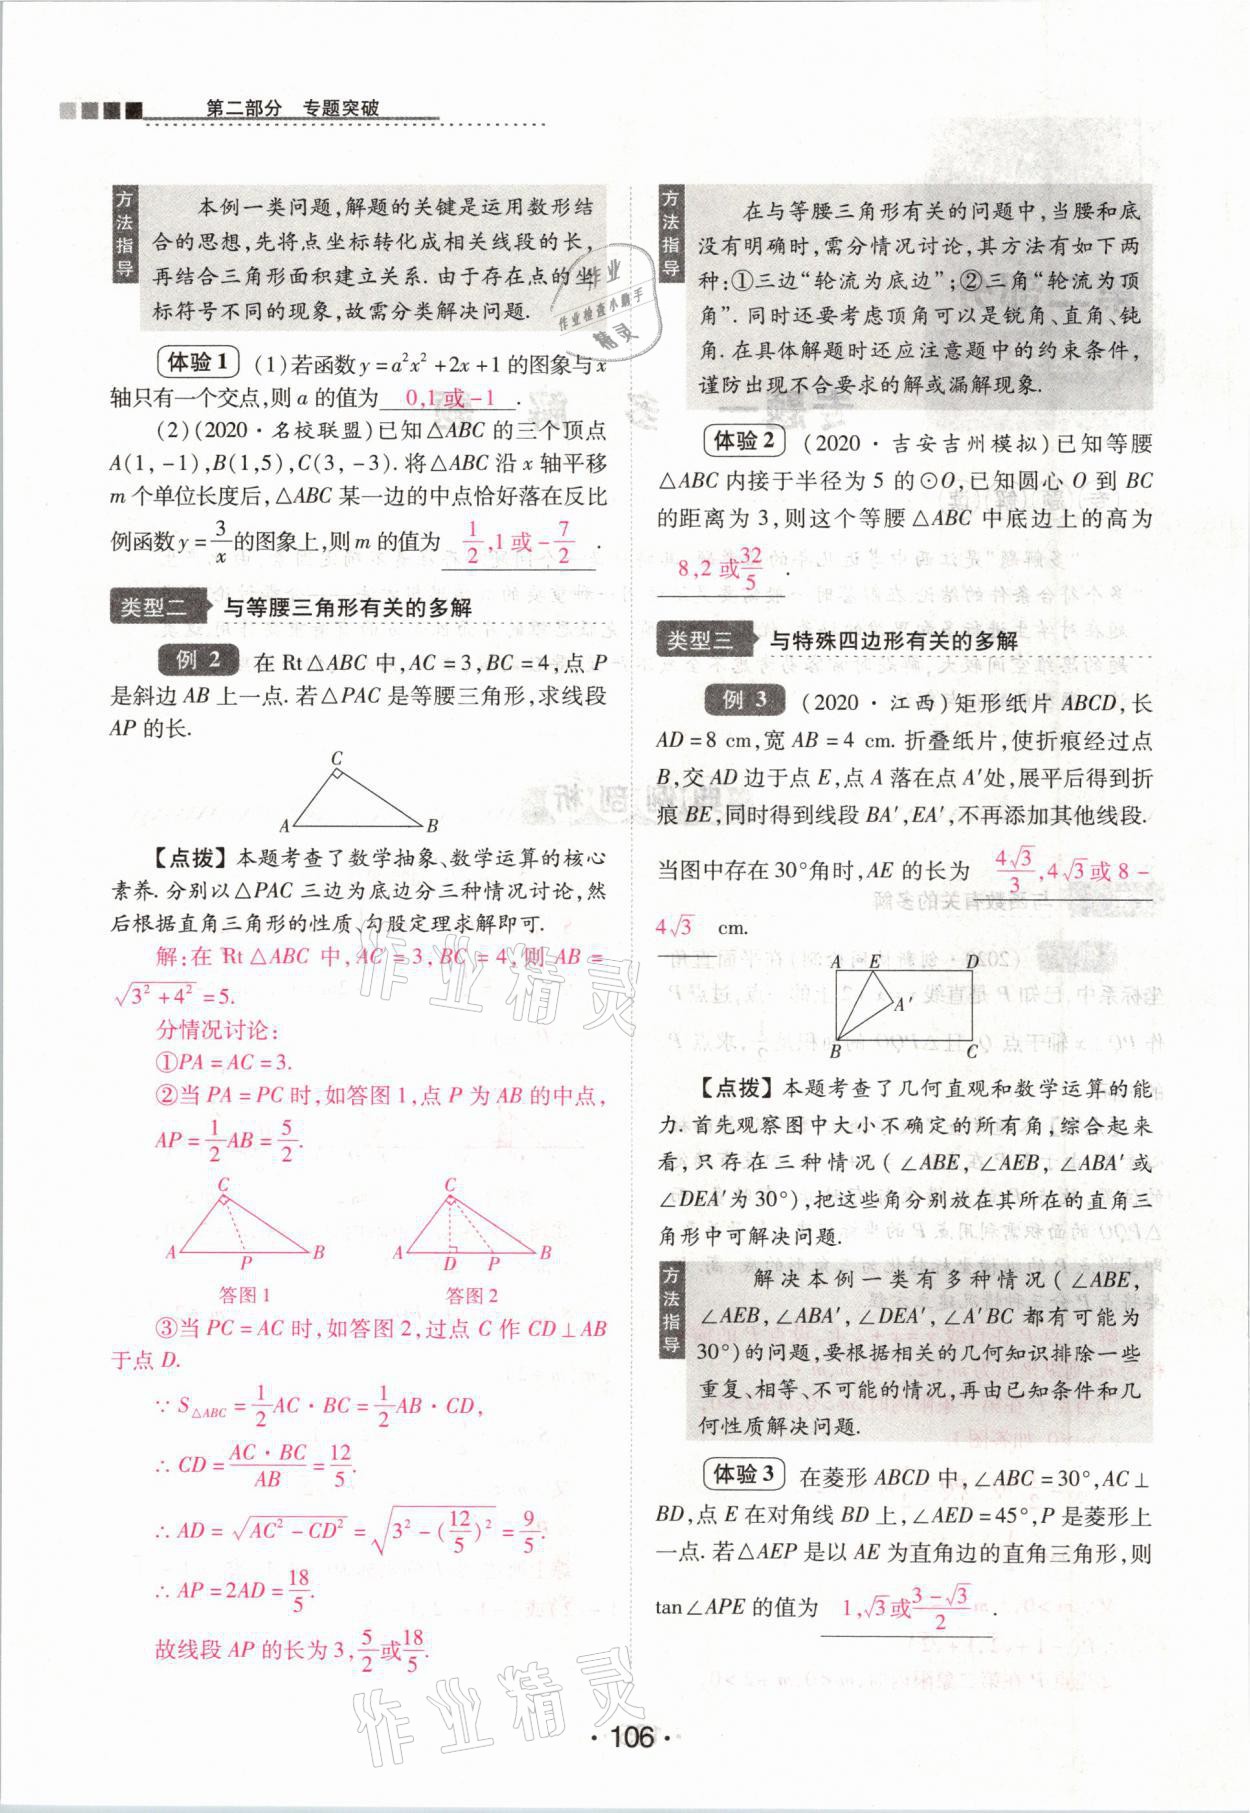 第二部分 专题突破
方法指导
本例一类问题,解题的关键是运用数形结
合的思想,先将点坐标转化成相关线段的长,
再结合三角形面积建立关系. 由于存在点的坐
标符号不同的现象,故需分类解决问题.
体验1 (1)若函数 y=a²x²+2x+1 的图象与 x
轴只有一个交点,则 a 的值为 0,1 或 -1 .
(2)(2020·名校联盟)已知△ABC 的三个顶点
A(1,-1),B(1,5),C(3,-3). 将△ABC 沿 x 轴平移
m 个单位长度后,△ABC 某一边的中点恰好落在反比
例函数 y=3/x 的图象上,则 m 的值为 1/2,1 或 -7/2 .
类型二 与等腰三角形有关的多解
例 2 在 Rt△ABC 中,AC=3,BC=4,点 P
是斜边 AB 上一点. 若△PAC 是等腰三角形,求线段
AP 的长.
C
A B
【点拨】本题考查了数学抽象、数学运算的核心
素养. 分别以△PAC 三边为底边分三种情况讨论,然
后根据直角三角形的性质、勾股定理求解即可.
解:在 Rt△ABC 中,AC=3,BC=4,则 AB=
√(3²+4²)=5.
分情况讨论:
①PA=AC=3.
②当 PA=PC 时,如答图1,点 P 为 AB 的中点,
AP=1/2AB=5/2.
C
A P B
答图 1
C
A D P B
答图 2
③当 PC=AC 时,如答图2,过点 C 作 CD⊥AB
于点 D.
∵S△ABC=1/2AC·BC=1/2AB·CD,
∴CD=AC·BC/AB=12/5.
∴AD=√(AC²-CD²)=√(3²-(12/5)²)=9/5.
∴AP=2AD=18/5.
故线段 AP 的长为 3,5/2或18/5.
方法指导
在与等腰三角形有关的问题中,当腰和底
没有明确时,需分情况讨论,其方法有如下两
种:①三边“轮流为底边”;②三角“轮流为顶
角”. 同时还要考虑顶角可以是锐角、直角、钝
角. 在具体解题时还应注意题中的约束条件,
谨防出现不合要求的解或漏解现象.
体验2 (2020·吉安吉州模拟)已知等腰
△ABC 内接于半径为 5 的⊙O,已知圆心 O 到 BC
的距离为 3,则这个等腰△ABC 中底边上的高为
8,2 或32/5 .
类型三 与特殊四边形有关的多解
例 3 (2020·江西)矩形纸片 ABCD,长
AD=8 cm,宽 AB=4 cm. 折叠纸片,使折痕经过点
B,交 AD 边于点 E,点 A 落在点 A′处,展平后得到折
痕 BE,同时得到线段 BA′,EA′,不再添加其他线段.
当图中存在30°角时,AE 的长为 4√3/3,4√3或8-
4√3 cm.
A E D
A′
B C
【点拨】本题考查了几何直观和数学运算的能
力. 首先观察图中大小不确定的所有角,综合起来
看,只存在三种情况(∠ABE,∠AEB,∠ABA′或
∠DEA′为30°),把这些角分别放在其所在的直角三
角形中可解决问题.
方法指导
解决本例一类有多种情况(∠ABE,
∠AEB,∠ABA′,∠DEA′,∠A′BC 都有可能为
30°)的问题,要根据相关的几何知识排除一些
重复、相等、不可能的情况,再由已知条件和几
何性质解决问题.
体验3 在菱形 ABCD 中,∠ABC=30°,AC⊥
BD,点 E 在对角线 BD 上,∠AED=45°,P 是菱形上
一点. 若△AEP 是以 AE 为直角边的直角三角形,则
tan∠APE 的值为 1,√3或(3-√3)/2 .
·106·
作业
作业检查小助手
精灵
作业精灵
作业精灵